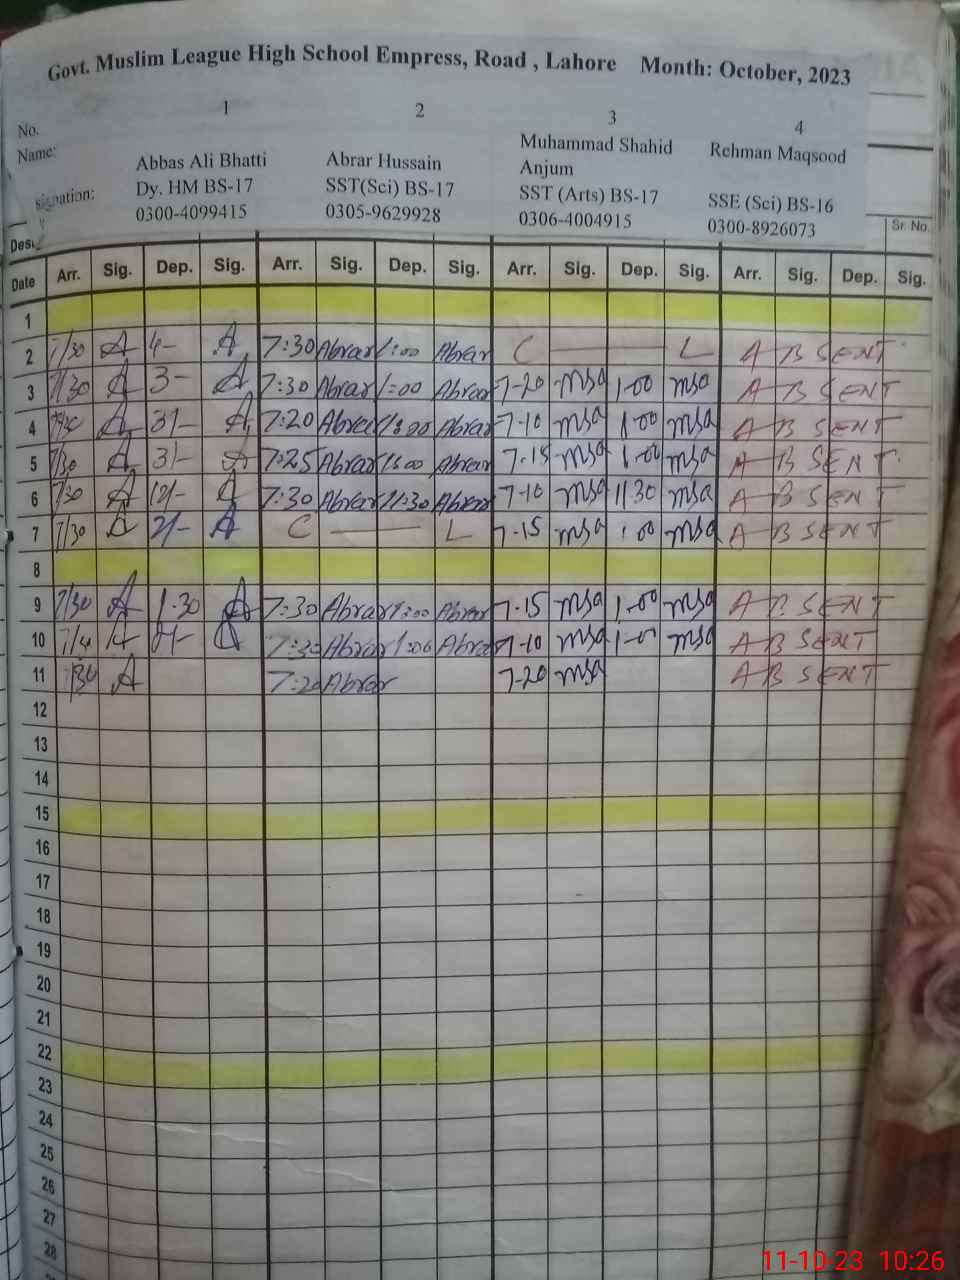 Govt. Muslim League High School Empress, Road , Lahore Month: October, 2023
No. 1 2 3 4
Name: Abbas Ali Bhatti Abrar Hussain Muhammad Shahid Anjum Rehman Maqsood
Dy. HM BS-17 SST(Sci) BS-17 SST (Arts) BS-17 SSE (Sci) BS-16
0300-4099415 0305-9629928 0306-4004915 0300-8926073
Sr. No.
Date Arr. Sig. Dep. Sig. Arr. Sig. Dep. Sig. Arr. Sig. Dep. Sig. Arr. Sig. Dep. Sig.
1
2 7/30 A 4- A 7:30 Abrar 1:00 Abrar C L ABSENT
3 7/30 A 3- A 7:30 Abrar 1:00 Abrar 7-20 msa 1-00 msa ABSENT
4 A 3/- A 7:20 Abrar 1:00 Abrar 7-10 msa 1-00 msa ABSENT
5 7/30 A 3/- A 7:25 Abrar 1:00 Abrar 7-15 msa 1-00 msa ABSENT
6 7/30 A 12/- A 7:30 Abrar 11:30 Abrar 7-10 msa 11.30 msa ABSENT
7 7/30 A 2/- A C L 7-15 msa 1-00 msa ABSENT
8
9 7/30 A 1.30 A 7:30 Abrar 1:00 Abrar 7-15 msa 1-00 msa ABSENT
10 A 7:30 Abrar 1:00 Abrar 7-10 msa 1-00 msa ABSENT
11 7/30 A 7:20 Abrar 7-20 msa ABSENT
12
13
14
15
16
17
18
19
20
21
22
23
24
25
26
27
28
11-10-23 10:26